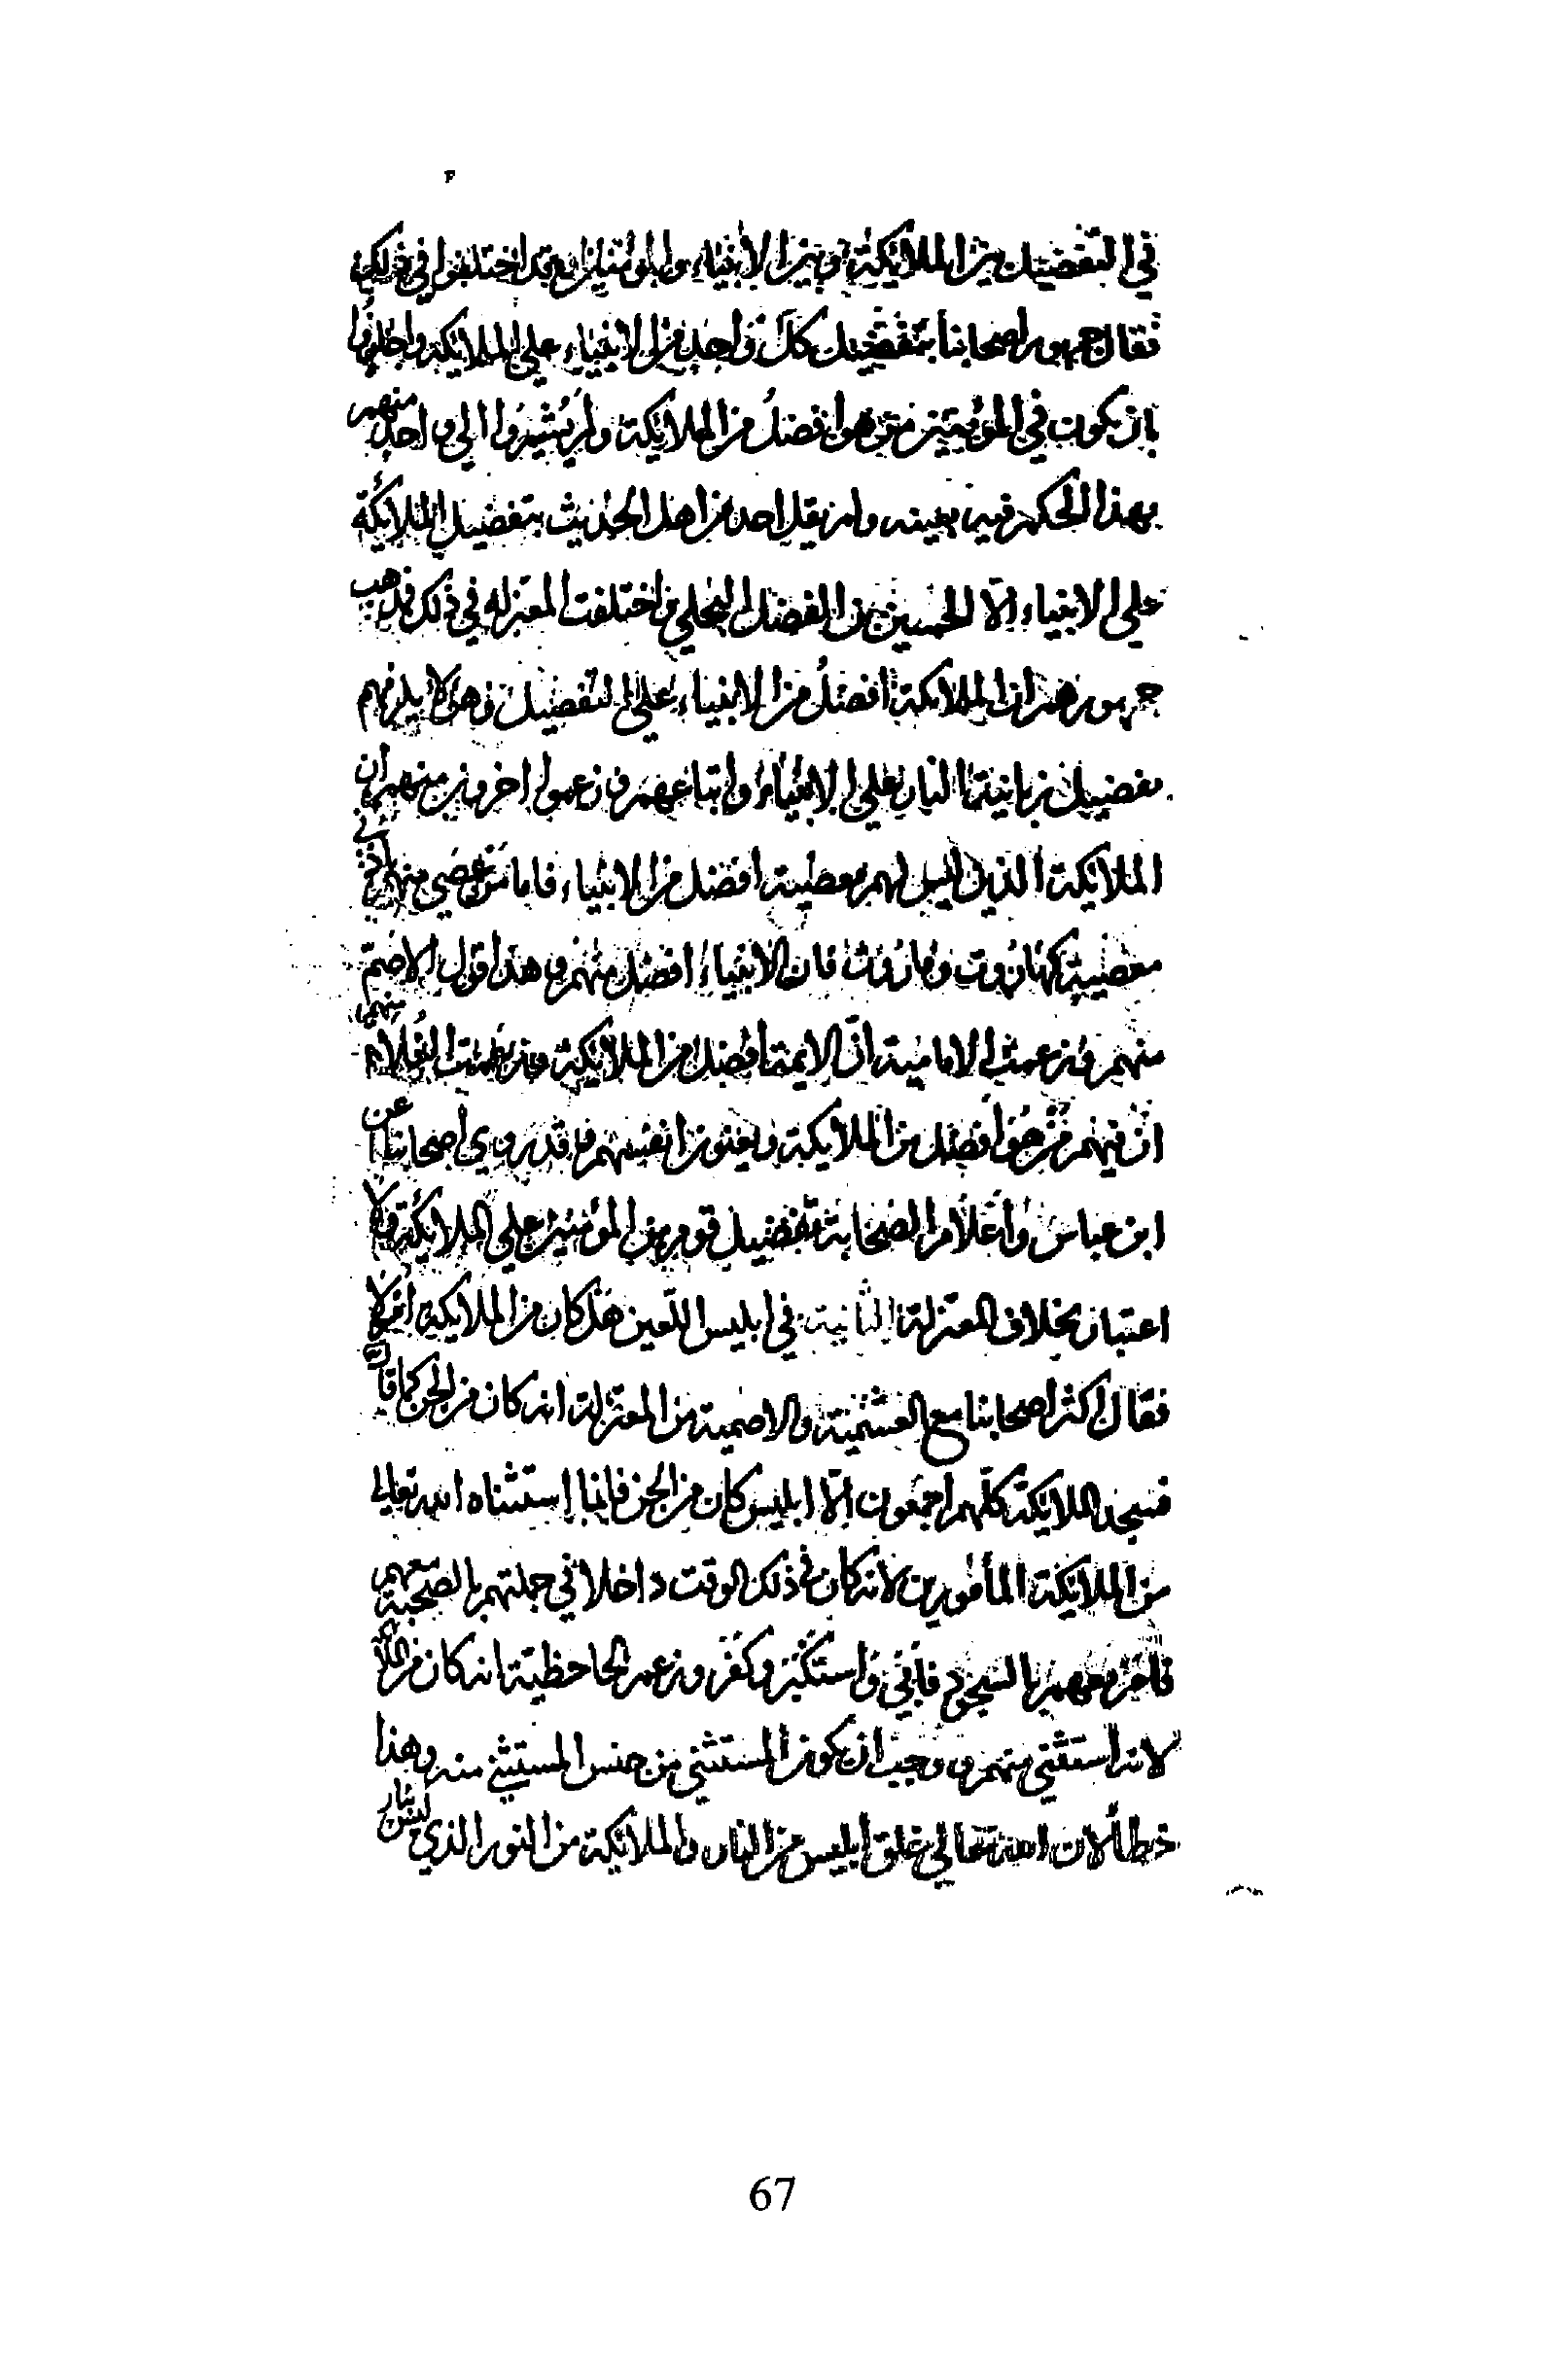 في التفضيل بين الملائكة وبين الانبياء والمؤمنين وقد اختلفوا في ذلك
فقال جمهور اصحابنا بتفضيل كل واحد من الانبياء علي الملايكة واجازوا
بان يكون في المؤمنين من هو افضل من الملايكة ولم يشيروا الي واحد منهم
بهذا الحكم فيه بعينه ولم يقل احد من اهل الحديث بتفضيل الملائكة
علي الانبياء الّا الحسين بن الفضل البجلي واختلفت المعتزله في ذلك فذهب
جمهورهم ان الملائكة افضل من الانبياء علي التفضيل وهولا يلزمهم
تفضيل زبانية النار علي الانبياء واتباعهم وزعموا اخرون منهم ان
الملائكة الذين ليس لهم معصية افضل من الانبياء فاما من عصي منهم ادني
معصية كهاروت وماروت فان الانبياء افضل منهم وهذا قول الاصم
منهم وزعمت الامامية انّ الايمة افضل من الملائكة وزعمت الغلاة منهم
انّ فيهم من هو افضل من الملايكة ويعنون انفسهم وقد روي اصحابنا عن
ابن عباس واعلام الصحابة تفضيل قوم من المؤمنين علي الملايكة ولا
اعتبار بخلاف المعتزلة الثانية في ابليس اللّعين هل كان من الملايكة ام لا
فقال اكثر اصحابنا مع والاصمية من المعتزلة انه كان من الجن كما قال
فسجد الملايكة كلّهم اجمعون الّا ابليس كان من الجن فانما استثناه الله تعالي
من الملايكة المأمورين لانه كان في ذلك الوقت داخلا في جملتهم بالصحبة معهم
فامر معهم بالسجود فأبي واستكبر وكفر وزعم الجاحظية انه كان من
لانه استثني منهم ووجب ان يكون المستثني من جنس المستثني منه وهذا
خطأ لان الله تعالي خلق ابليس من النار والملائكة من النور الذي ليس بنار
67